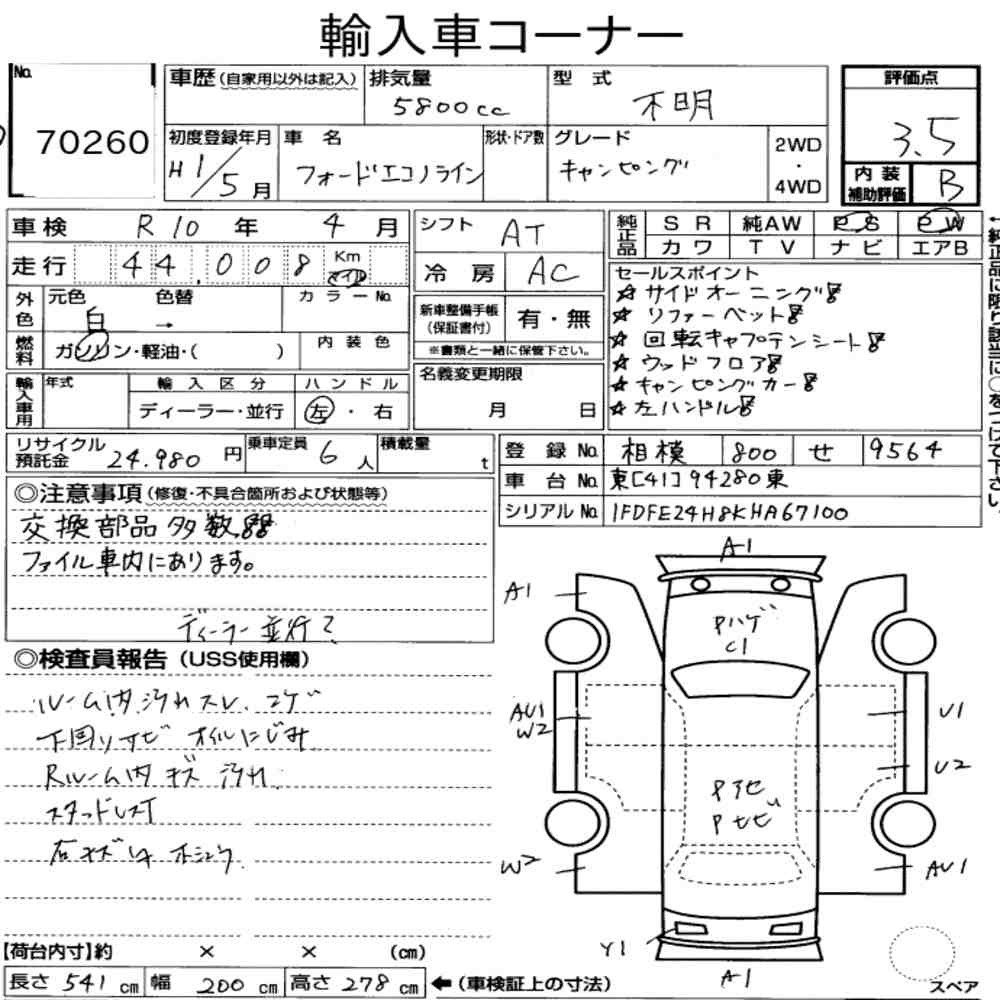 輸入車コーナー
No. 70260
車歴 (自家用以外は記入)
排気量 5800cc
型式 不明
評価点 3.5
初度登録年月 H1/5月
車名 フォードエコノライン
形状・ドア数
グレード キャンピング
2WD・4WD
内装補助評価 B
車検 R10年 4月
シフト AT
純正品 SR 純AW PS PW
カワ TV ナビ エアB
走行 44,008 Km マイル
冷房 AC
セールスポイント
☆サイドオーニング!!
☆リファーベット!!
☆回転キャプテンシート!!
☆ウッドフロア!!
☆キャンピングカー!!
☆左ハンドル!!
外色 元色 白 色替 → カラーNo.
新車整備手帳(保証書付) 有・無
※書類と一緒に保管下さい。
燃料 ガソリン・軽油・( ) 内装色
名義変更期限 月 日
輸入車用 年式 輸入区分 ハンドル
ディーラー・並行 左・右
リサイクル預託金 24.980円
乗車定員 6人
積載量 t
登録No. 相模 800 せ 9564
車台No. 東[41]94280東
シリアルNo. 1FDFE24H8KHA67100
◎注意事項(修復・不具合箇所および状態等)
交換部品多数!!
ファイル車内にあります。
ディーラー並行?
◎検査員報告(USS使用欄)
ルーム内汚れスレ コゲ
下回りサビ オイルにじみ
Rルーム内キズ 汚れ
スタッドレスT
A1
A1
Pハゲ
C1
AU1
W2
U1
U2
W2
AU1
Y1
A1
スペア
【荷台内寸】約 × × (cm)
長さ 541cm 幅 200cm 高さ 278cm ←(車検証上の寸法)